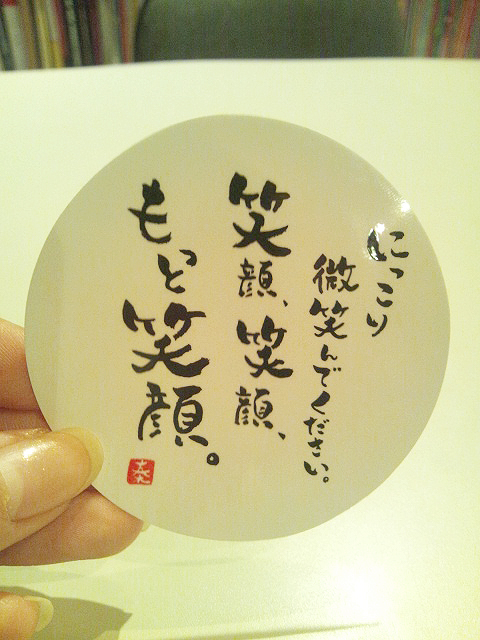 にっこり
微笑んでください。
笑顔、笑顔、
もっと笑顔。